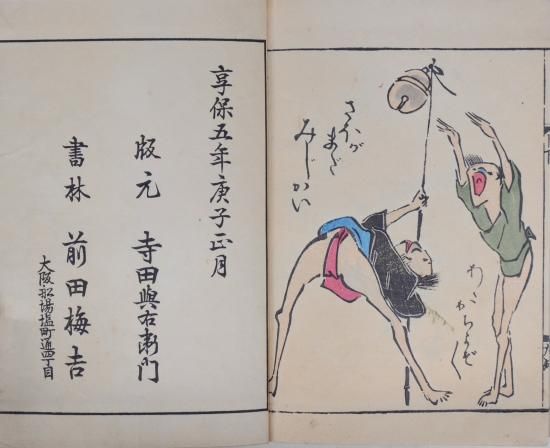 さほが
まだ
みじかい
享保五年庚子正月
版元 寺田與右衛門
書林 前田梅吉
大阪船場塩町通四丁目